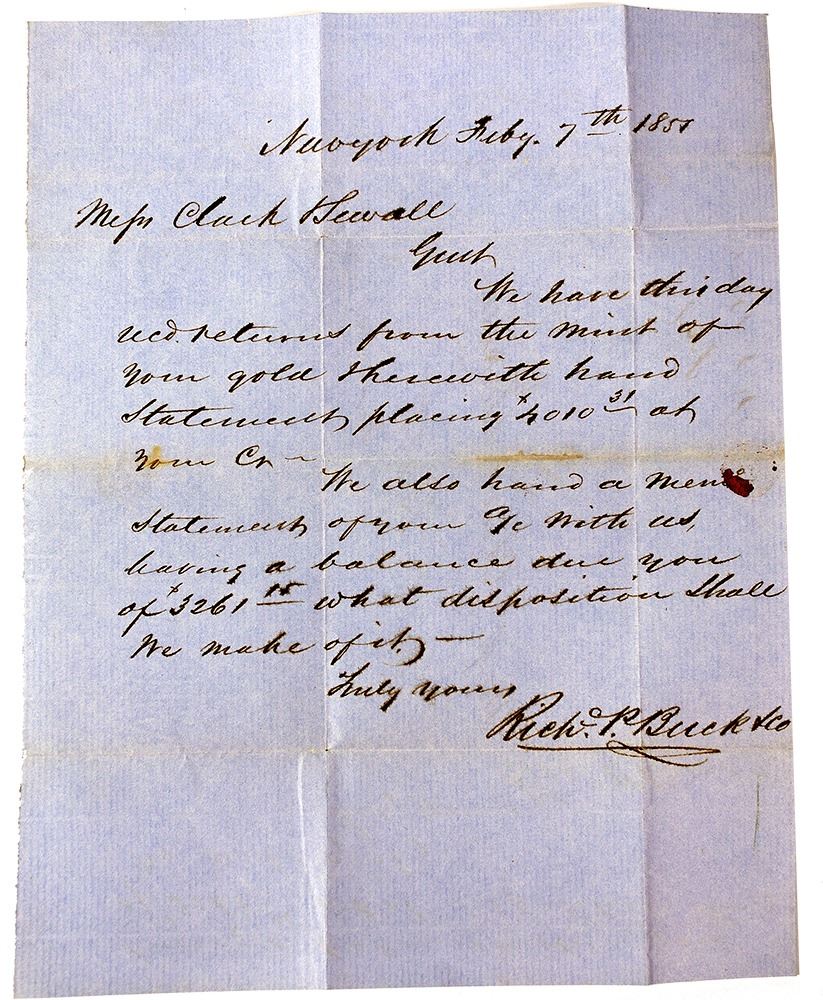 Newyork Feby. 7th 1851
Messrs Clark & Sewall
Gent
We have this day
recd. returns from the mint of
your gold & herewith hand
Statement placing $4010 31 at
your Cr —
We also hand a Memo
Statement of your a/c with us,
having a balance due you
of $3261 15 what disposition shall
We make of it, —
Truly yours
Richd. P. Buck & Co